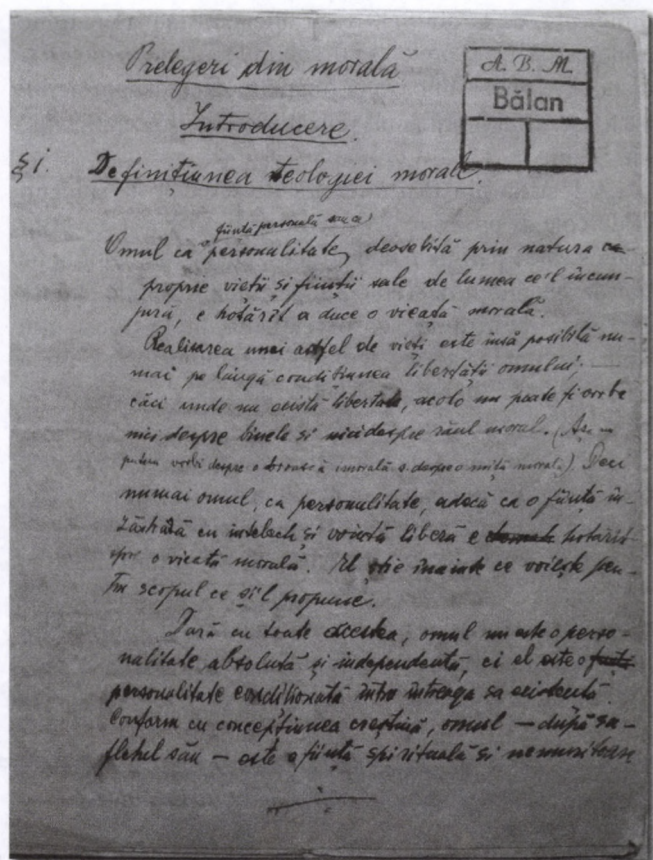 Prelegeri din morală
A. B. M.
Bălan
Introducere.
§ 1. Definițiunea teologiei morale.
ființă personală
Omul ca personalitate, deosebită prin natura
proprie vieții și ființii sale de lumea ce-l încun-
jură, e hotărît a duce o vieață morală.
Realisarea unei astfel de vieți este însă posibilă nu-
mai pe lângă condițiunea libertății omului;
căci unde nu există libertate, acolo nu poate fi vorba
nici despre binele și nici despre răul moral. (Așa
putea vorbi despre o broască morală s. despre o mâță morală.) Deci
numai omul, ca personalitate, adecă ca o ființă în-
zăstrată cu intelect și voință liberă e hotărît
spre o vieață morală. El știe înainte ce voiește pen-
tru scopul ce și-l propune.
Dară cu toate acestea, omul nu este o perso-
nalitate absolută și independentă, ci el este o
personalitate condiționată întru întreaga sa existență.
Conform cu concepțiunea creștină, omul — după su-
fletul său — este o ființă spirituală și nemuritoare